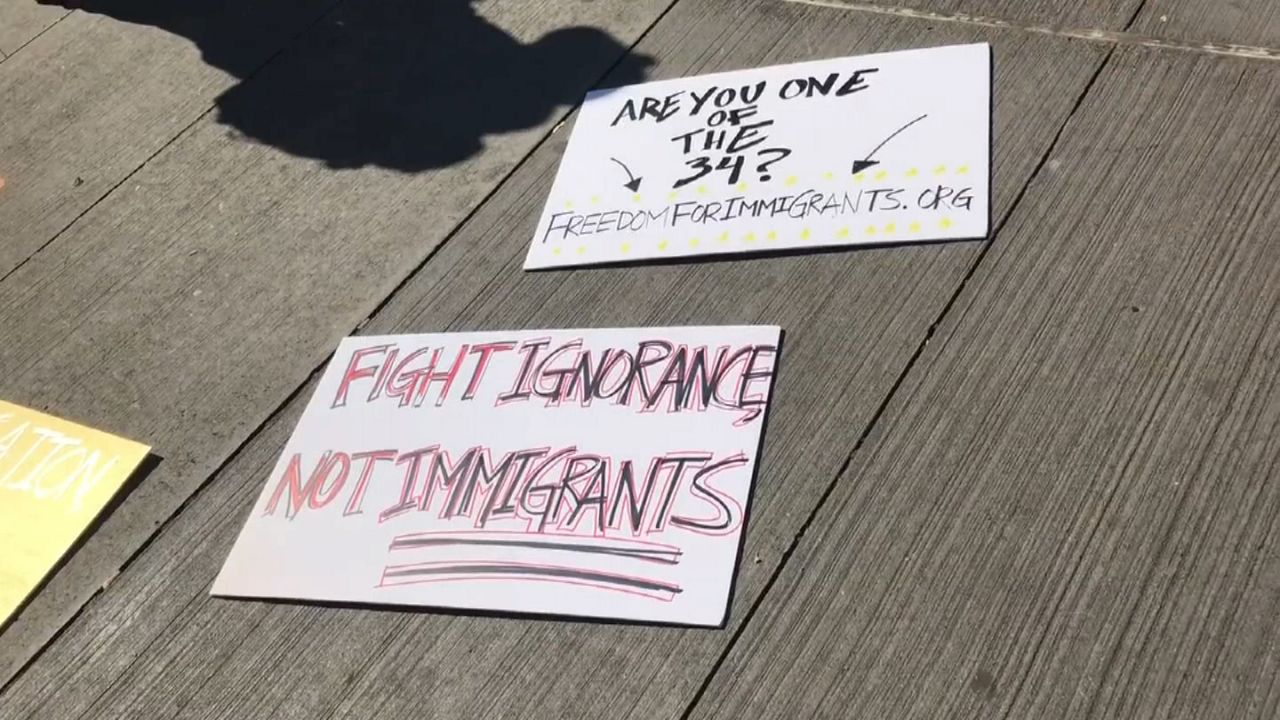 ARE YOU ONE
OF
THE
34?
FREEDOMFORIMMIGRANTS.ORG
FIGHT IGNORANCE,
NOT IMMIGRANTS